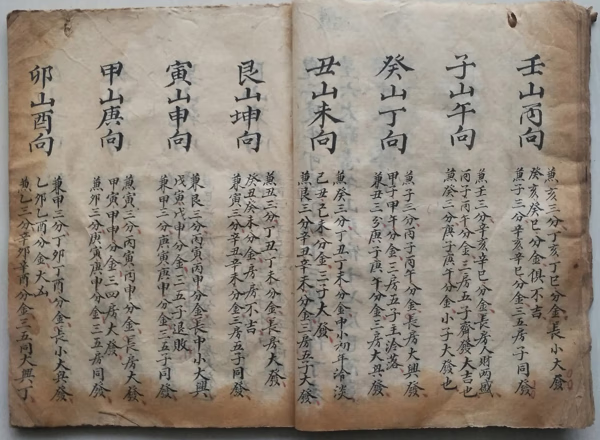 壬山丙向
兼亥三分丁亥丁巳分金長小大發
癸亥癸巳分金俱不吉
兼子三分辛亥辛巳分金三五房子同發
子山午向
兼壬三分辛亥辛巳分金長房人財兩盛
丙子丙午分金三房五子齊發大吉也
兼癸三分庚子庚午分金小子大發也
癸山丁向
兼子三分丙子丙午分金長房大興發
甲子甲午分金三房五子主冷落
兼丑三分庚子庚午分金三房大興發
丑山未向
兼癸三分丁丑丁未分金中小初年冷淡
己丑己未分金三子大發
兼艮三分辛丑辛未分金三房五子大發
艮山坤向
兼丑三分丁丑丁未分金長房大發
癸丑癸未分金房房不吉
兼寅三分辛丑辛未分金三房五子同發
寅山申向
兼艮三分丙寅丙申分金長中小大興
戊寅戊申分金三五子退敗
兼甲三分庚寅庚申分金三五子大發
甲山庚向
兼寅三分丙寅丙申分金長房大發
甲寅甲申分金三四房大發
兼卯三分庚寅庚申分金三五房同發
卯山酉向
兼甲三分丁卯丁酉分金長小大興發
乙卯乙酉分金大凶
兼乙三分辛卯辛酉分金三五同大興丁